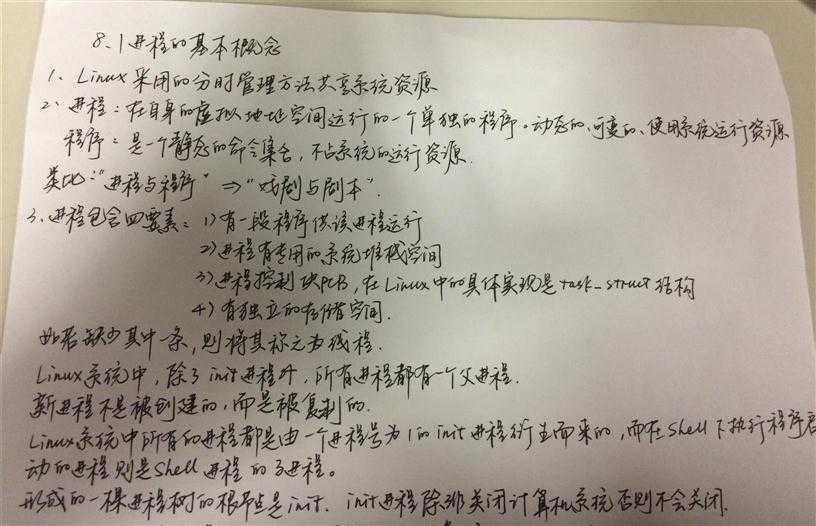 8.1 进程的基本概念
1、Linux采用的分时管理方法共享系统资源
2、进程：在自身的虚拟地址空间运行的一个单独的程序。动态的、可变的、使用系统运行资源
程序：是一个静态的命令集合，不占系统的运行资源.
类比：“进程与程序” ⇒ “戏剧与剧本”.
3、进程包含四要素：1）有一段程序供该进程运行
2）进程有专用的系统堆栈空间
3）进程控制块PCB，在Linux中的具体实现是task_struct结构
4）有独立的存储空间.
如若缺少其中一条，则将其称之为线程.
Linux系统中，除了init进程外，所有进程都有一个父进程.
新进程不是被创建的，而是被复制的.
Linux系统中所有的进程都是由一个进程号为1的init进程衍生而来的，而在Shell下执行程序启
动的进程则是Shell进程的子进程。
形成的一棵进程树的根节点是init. init进程除非关闭计算机系统否则不会关闭.